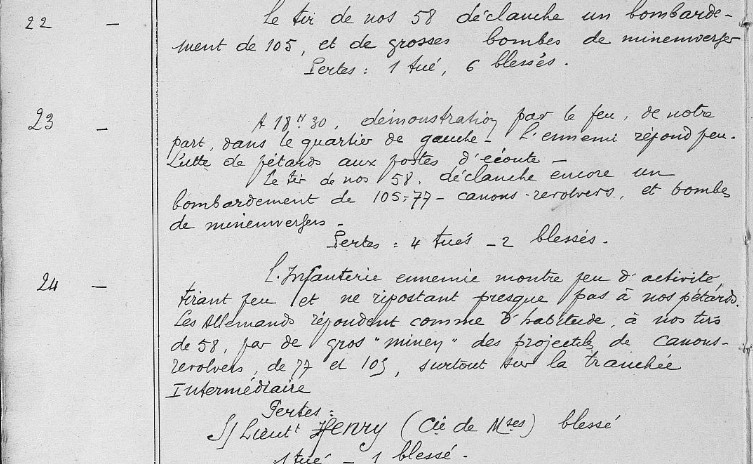 22 — Le tir de nos 58 déclanche un bombarde-
ment de 105, et de grosses bombes de minenwerfer
Pertes : 1 tué, 6 blessés.
23 — A 18h30, démonstration par le feu, de notre
part, dans le quartier de gauche - L'ennemi répond peu.
Lutte de pétards aux postes d'écoute -
Le tir de nos 58 déclanche encore un
bombardement de 105-77 - canons-revolvers, et bombes
de minenwerfers -
Pertes : 4 tués - 2 blessés.
24 — L'Infanterie ennemie montre peu d'activité
tirant peu et ne ripostant presque pas à nos pétards.
Les Allemands répondent comme d'habitude, à nos tirs
de 58, par de gros "minen" des projectiles de canons-
revolvers, de 77 et 105, surtout sur la tranchée
Intermédiaire
Pertes :
S/Lieutt Henry (Cie de Mses) blessé
1 tué - 1 blessé.